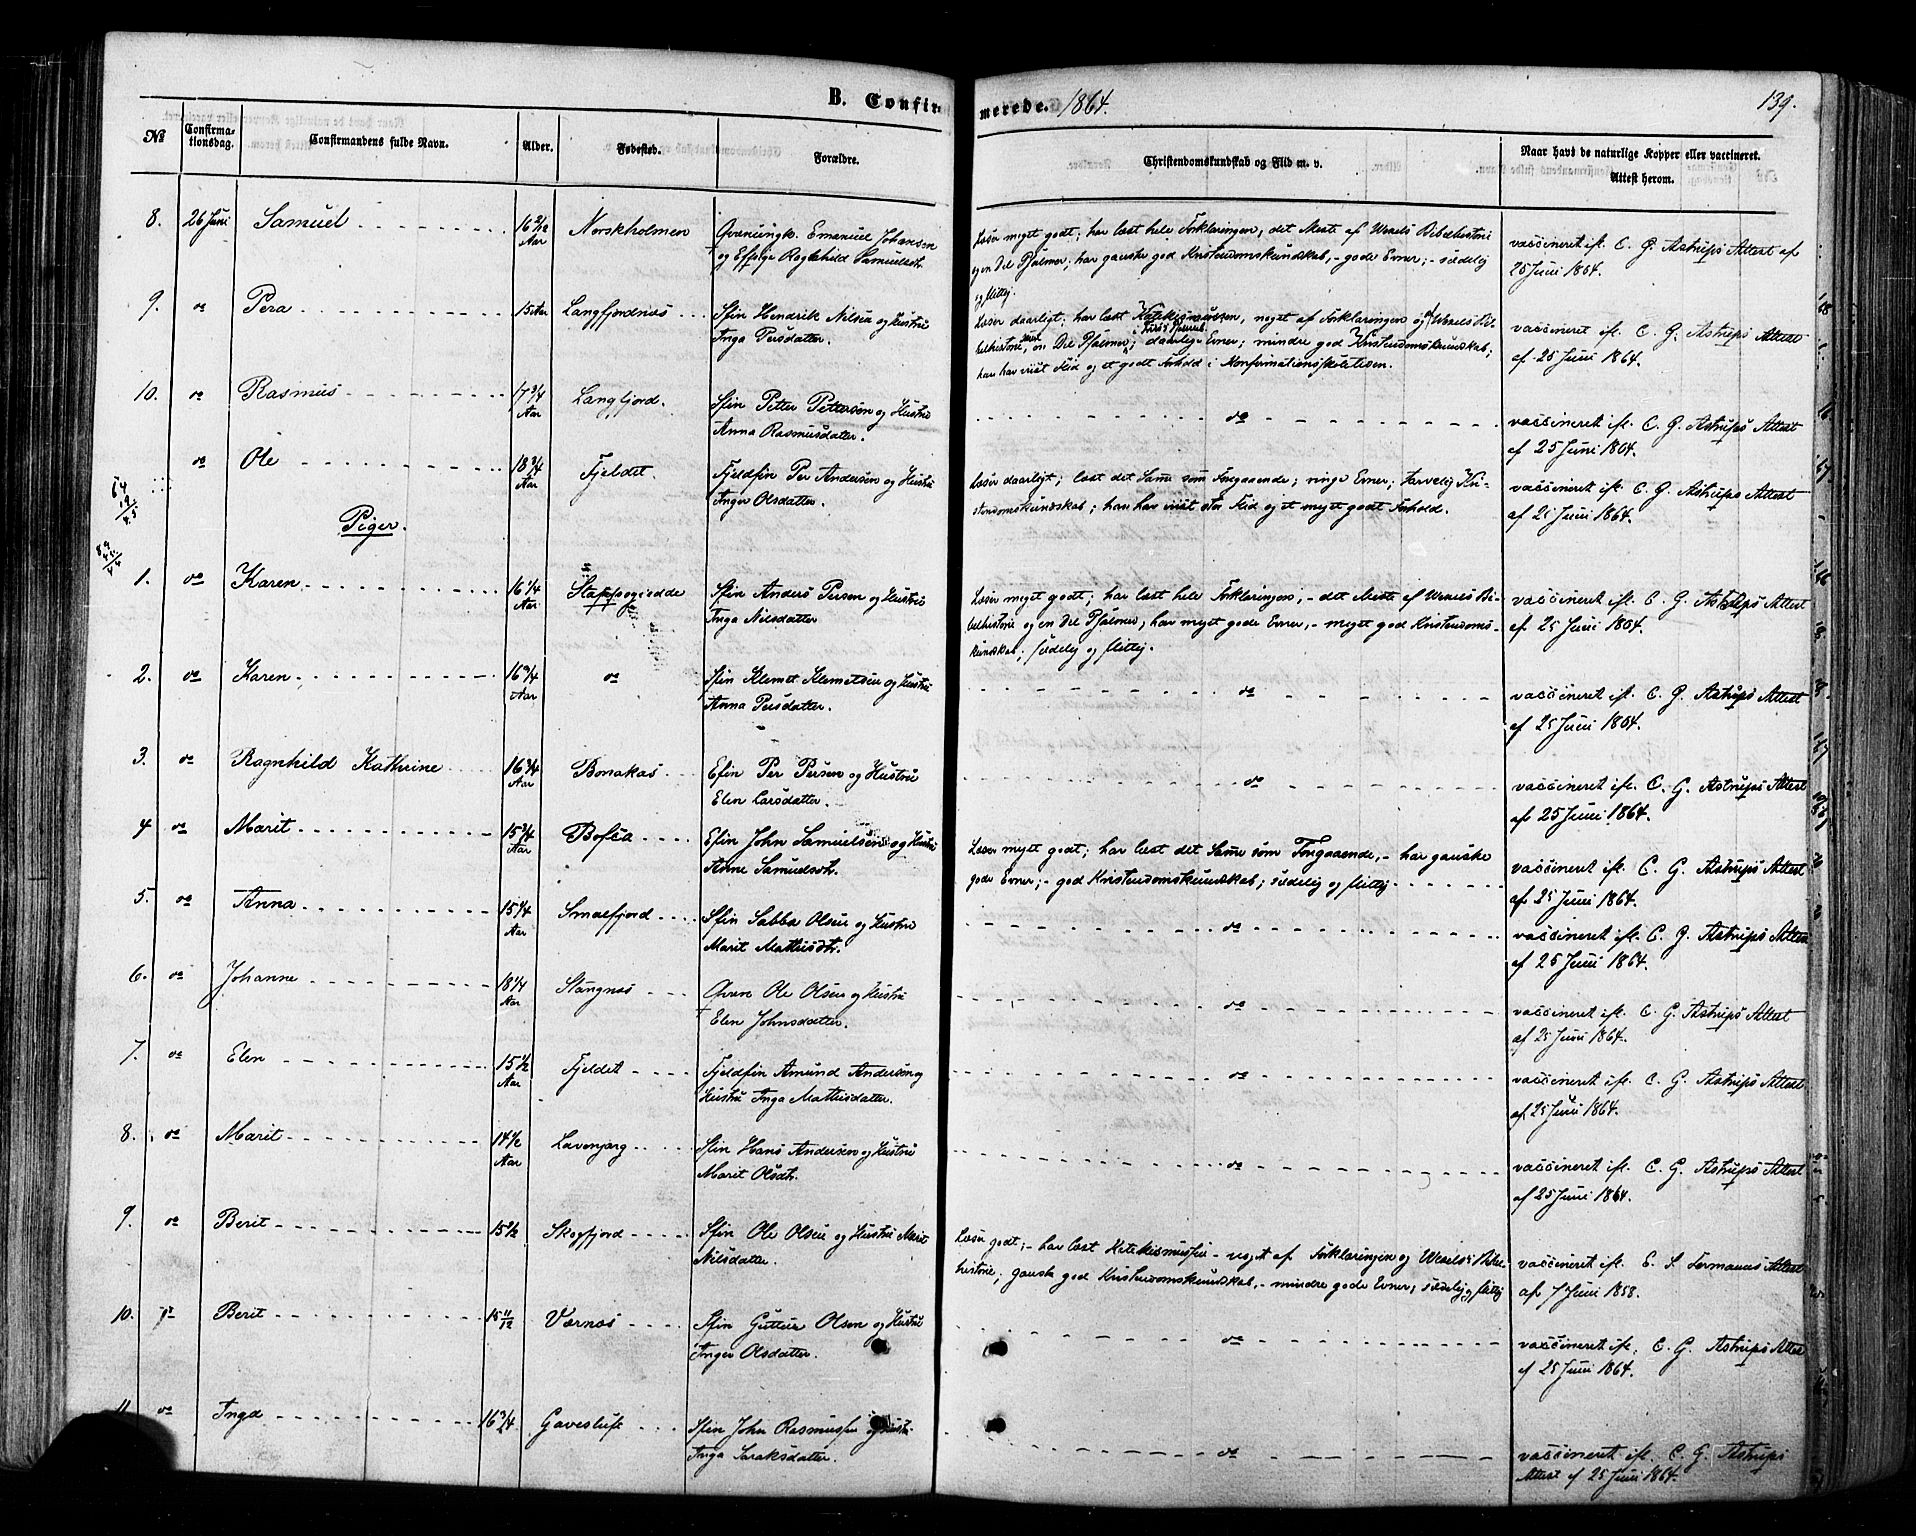 B. Confirmerede. 1864. 139.
№ Confirmationsdag. Confirmandens fulde Navn. Alder. Fødested. Forældre. Christendomskundskab og Flid m. v. Naar havd de naturlige Kopper eller vaccineret. Attest herom.
8. 26 Juni Samuel 16 2/12 Aar Norskholmen Emanuel Johansen
og Ragnhild Samuelsdt.
Læser meget godt; har læst hele Forklaringen, det Meste af Wexels Bibelhistorie
og en Del Psalmer; har ganske god Kristendomskundskab, - gode Evner; - sædelig
og flittig.
vaccineret ifl. C. G. Astrups Attest af
25 Juni 1864.
9. do Pera 15 Aar Langfjordnæs Sfin Hendrik Nilsen og Hustru
Inga Persdatter.
Læser daarligt; har læst Katekismussen, noget af Forklaringen og Wexels Bi-
belhistorie, en Del Psalmer; daarlige Evner; mindre god Kristendomskundskab;
han har viist Flid og et godt Forhold i Konfirmationsskoletiden.
vaccineret ifl. C. G. Astrups Attest
af 25 Juni 1864.
10. do Rasmus 17 3/4 Aar Langfjord. Sfin Petter Pettersen og Hustru
Anna Rasmusdatter.
do
vaccineret ifl. C. G. Astrups Attest
af 25 Juni 1864.
do Ole 18 3/4 Aar Fjeldet. Fjeldfin Per Andersen og Hustru
Inger Olsdatter.
Læser daarligt; læst det Samme som Foregaaende; ringe Evner; tarvelig Kri-
stendomskundskab; han har viist stor Flid og et meget godt Forhold.
vaccineret ifl. C. G. Astrups Attest
af 25 Juni 1864.
Piger.
1. do Karen 16 1/4 Aar Stappogiedde Sfin Anders Persen og Hustru
Inga Nilsdatter
Læser meget godt; har læst hele Forklaringen, - det Meste af Wexels Bi-
belhistorie og en Del Psalmer, har meget gode Evner, - meget god Kristendoms-
kundskab; sædelig og flittig.
vaccineret ifl. C. G. Astrups Attest
af 25 Juni 1864.
2. do Karen Aar do Sfin Klemet Klemetsen og Hustru
Anna Persdatter.
do
vaccineret ifl. C. G. Astrups Attest
af 25 Juni 1864.
3. do Ragnhild Kathrine 16 3/4 Aar Bonakas Efin Per Persen og Hustru
Elen Larsdatter.
do
vaccineret ifl. C. G. Astrups Attest
af 25 Juni 1864.
4 do Marit 15 3/4 Aar Efin John Samuelsen og Hustru
Anne Samuelsdt.
Læser meget godt; har læst det Samme som Foregaaende, - har ganske
gode Evner; - god Kristendomskundskab; sædelig og flittig
vaccineret ifl. C. G. Astrups Attest
af 25 Juni 1864.
5. do Anna 15 1/4 Aar Smalfjord Sfin Sabba Olsen og Hustru
Marit Mathisdt.
do
vaccineret ifl. C. G. Astrups Attest
af 25 Juni 1864.
6. do Johanne 18 1/4 Aar Stangnæs Qvæn Ole Olsen og Hustru
Elen Johnsdatter.
do
vaccineret ifl. C. G. Astrups Attest
af 25 Juni 1864.
7. do Elen 15 1/2 Aar Fjeldet Fjeldfin Amund Andersen og
Hustru Inga Mathisdatter.
do
vaccineret ifl. C. G. Astrups Attest
af 25 Juni 1864.
8. do Marit 14 1/2 Aar Lavenjarg Sfin Hans Andersen og Hustru
Marit Olsdt.
do
vaccineret ifl. C. G. Astrups Attest
af 25 Juni 1864.
9. do Berit 15 1/2 Skogfjord Sfin Ole Olsen og Hustru Marit
Nilsdatter.
Læser godt; - har læst Katekismussen - noget af Forklaringen og Wexels Bibel-
historie; ganske god Kristendomskundskab, - mindre gode Evner; sædelig og flittig
vaccineret ifl. Attest
af 7 Juni 1858.
10. do Berit 15 11/12 Værnæs Sfin Olsen og Hustru
Inger Olsdatter.
do
vaccineret ifl. C. G. Astrups Attest
af 25 Juni 1864.
11 do Inga 16 3/4 Gavesluft Sfin John Rasmussen og Hustru
Inga Saraksdatter.
do
vaccineret ifl. C. G. Astrups
Attest af 25 Juni 1864.